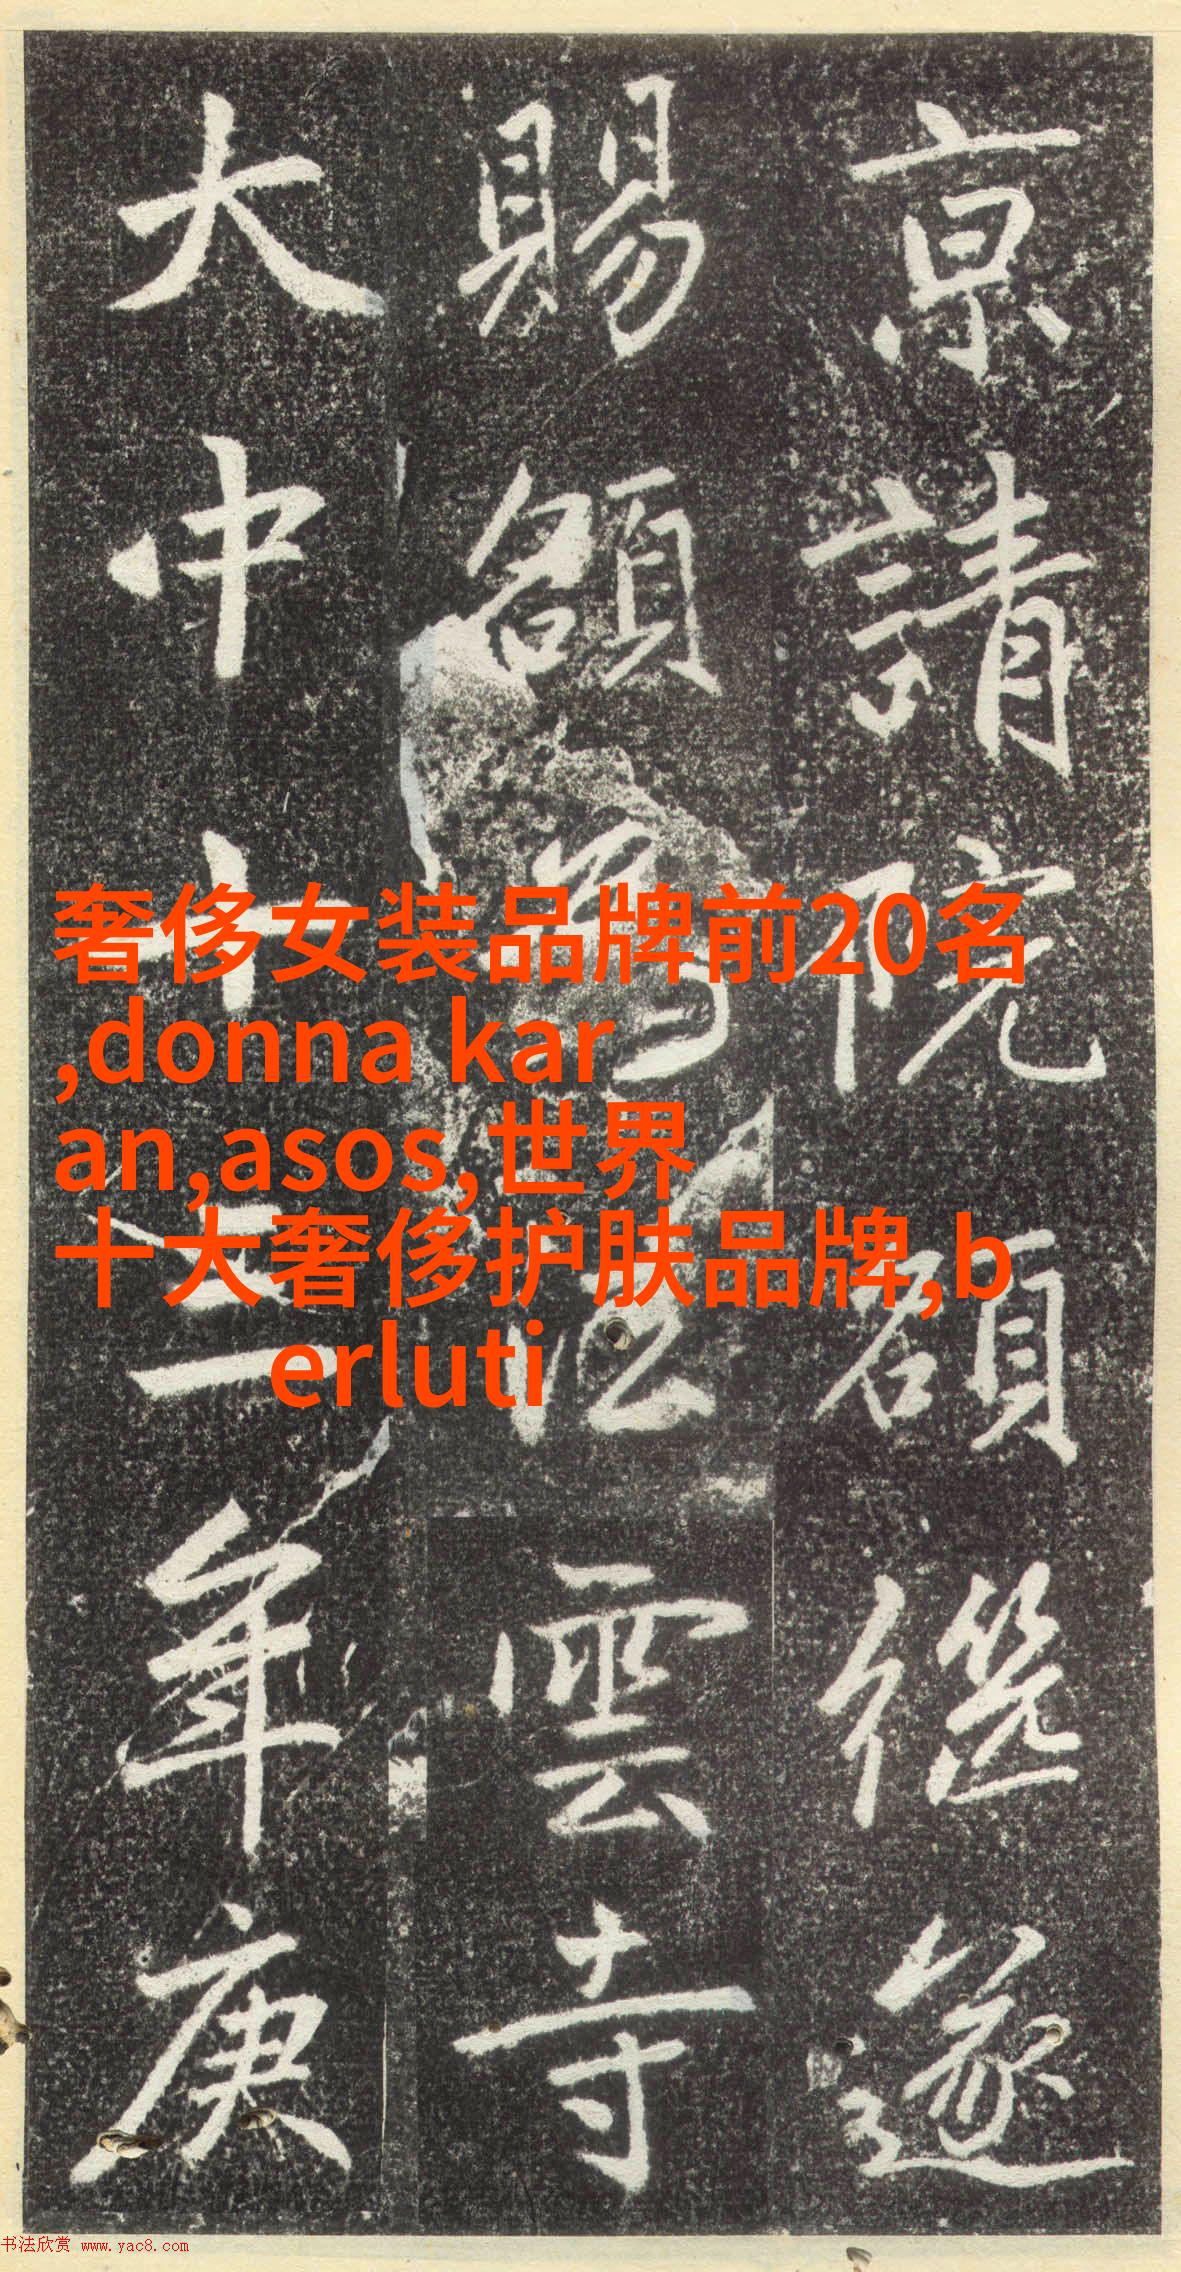 京請院額遂
賜額為法雲寺
大中十三年庚
奢侈女装品牌前20名
,donna kar
an,asos,世界
十大奢侈护肤品牌,b
erluti
书法欣赏 www.yac8.com